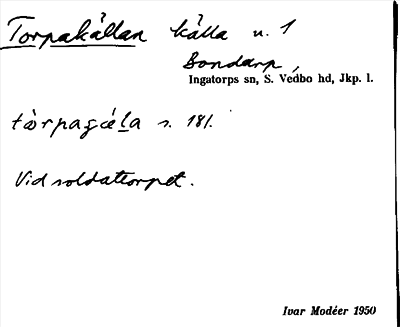 Torpakällan källa n. 1
Bondarp,
Ingatorps sn, S. Vedbo hd, Jkp. l.
s. 181.
Vid soldattorpet.
Ivar Modéer 1950